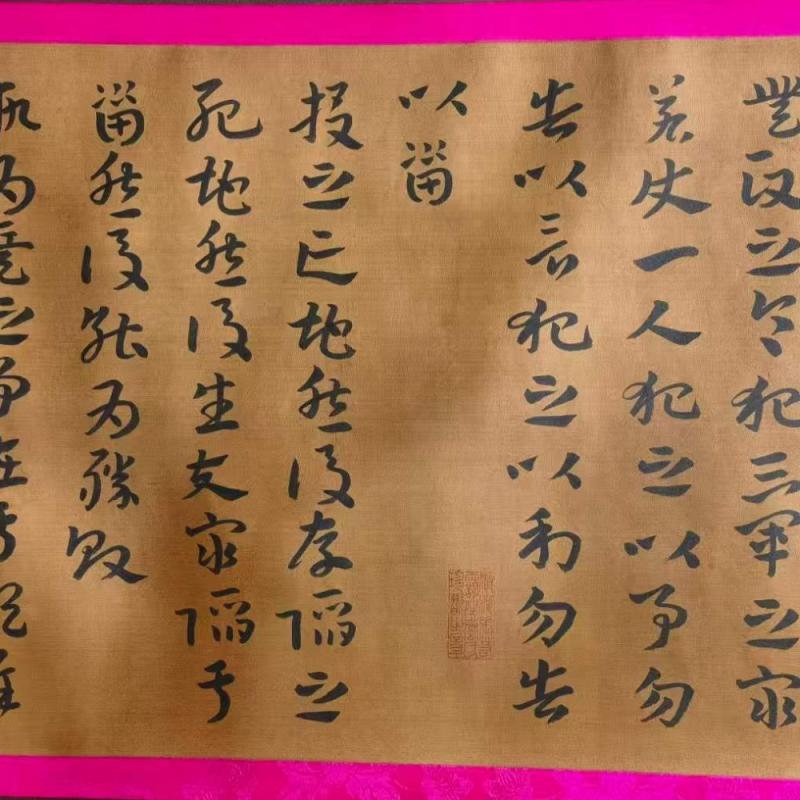 無政之令犯三軍之眾
若使一人犯之以事勿
告以言犯之以利勿告
以害
投之亡地然後存陷之
死地然後生夫眾陷于
害然後能為勝敗
故為兵之事在于順詳